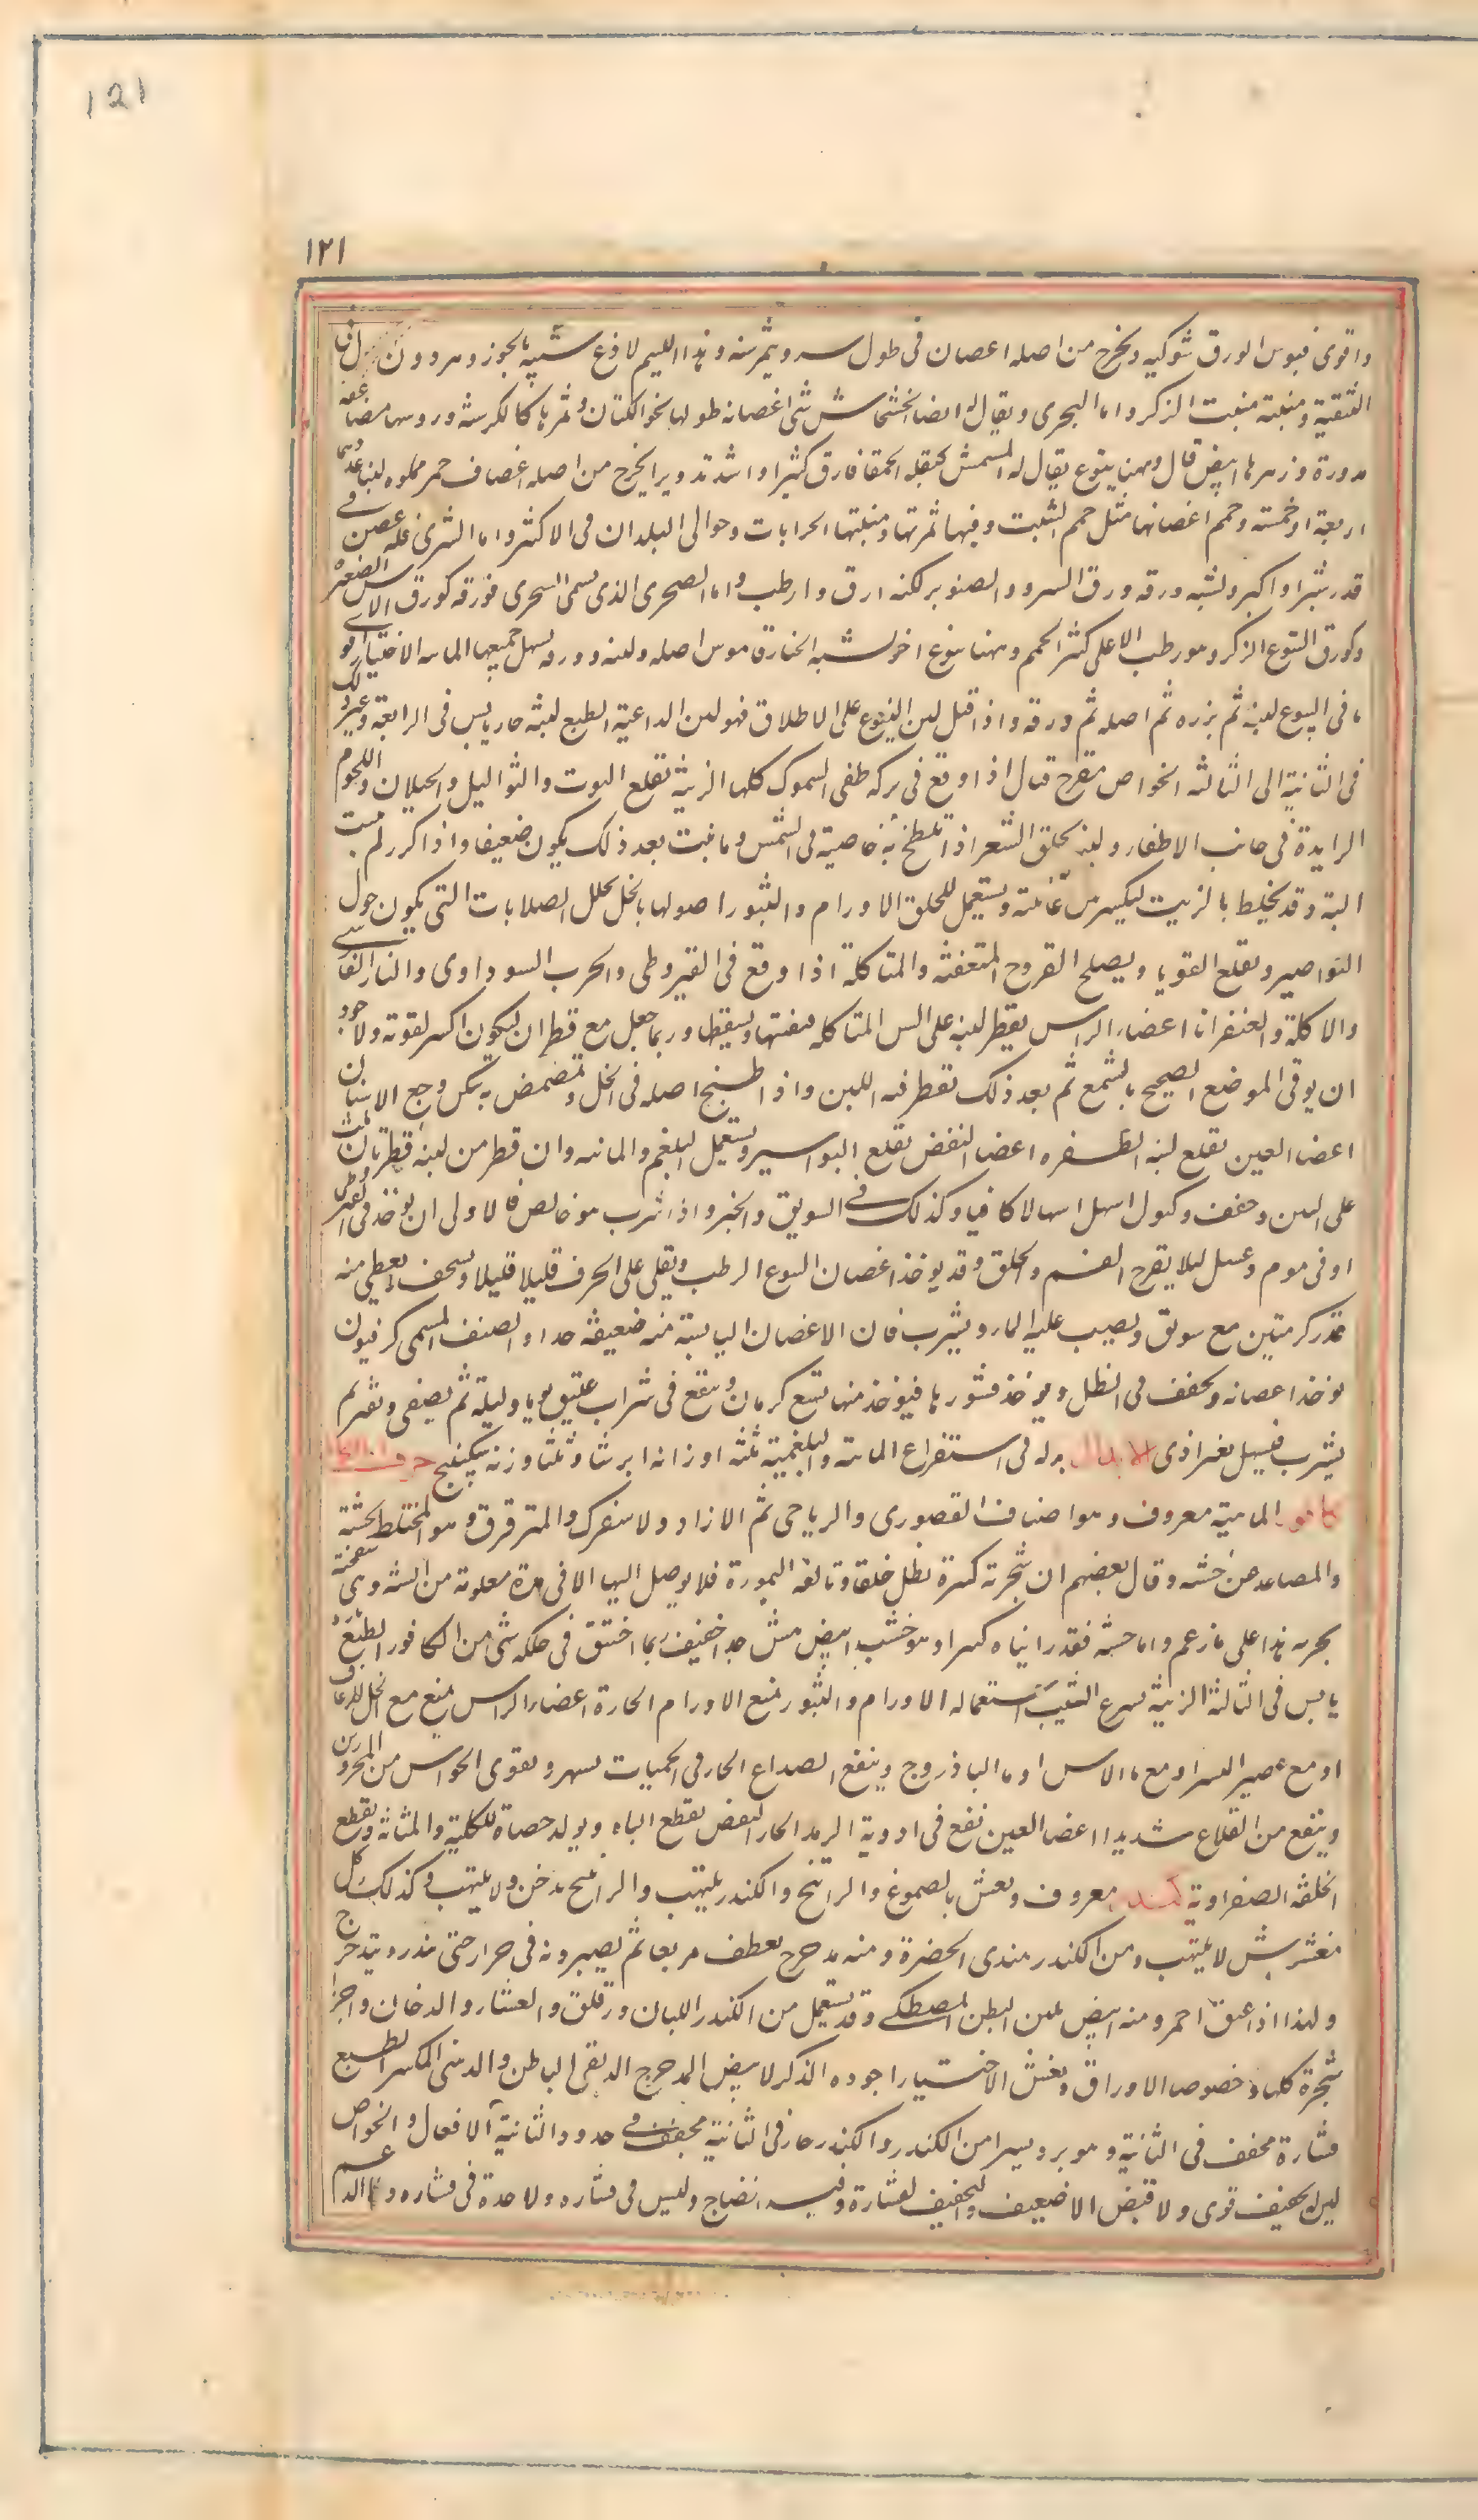 121
١٢١
واقوى فيوس الورق شوكيه ويخرج من اصله اعصان فى طول سـ ويثمر سنه وهذا الليم لاذع شبيه بالجوز و
القنقية ومنبته منبت الذكر واما البحرى ويقال له ايضا الخشخاش شى اغصانه طولها نحو الكتان وثمرها كالكرسنه وروسها مضاعفه
مدورة وزهرها ابيض قال وههنا يتوع يقال له المسمش كبقله الحمقا فارق كثيرا واشد تدويرا يخرج من اصله اغصاف حمر مملوه لبنا عددها
اربعة او خمسة وجمم اغصانها مثل جمم الشبت وفيها ثمرتها ومنبتها الخرابات وحوالى البلدان فى الاكثر واما الشرى فله غصن فى
قدر شبر او اكبر ويشبه ورقه ورق السرو والصنوبر لكنه ارق وارطب واما الصحرى الذى يسمى السحرى فورقه كورق الاس الصغير
وكورق اليتوع الذكر وهو رطب الاعلى كثر الجمم وههنا يتوع اخر يشبه الخنازق هو من اصله ولبنه وورقه يسهل جميعها المائيه الاختيار اقوى
ما فى اليتوع لبنه ثم بزره ثم اصله ثم ورقه واذا قيل لبن اليتوع على الاطلاق فهو لبن الداعية الطبع لبنه حار يابس فى الرابعة وغير ذلك
فى الثانية الى الثالثه الخواص مقرح قتال اذا وقع فى بركه طفى السموك كلها الزينة يقلع التوت والثواليل والخيلان واللحوم
الزايدة فى جانب الاظفار ولبنه يحلق الشعر اذا تلطخ به خاصية فى الشمس وما نبت بعد ذلك يكون ضعيفا واذا كرر لم ينبت
البتة وقد يخلط بالزيت ليكسر من عاديته ويستعمل للحلق الاورام والبثور اصولها بالخل يحلل الصلابات التى يكون حول
النواصير ويقلع القوبا ويصلح القروح المتعفنة والمتاكلة اذا وقع فى القيروطى والجرب السوداوى والنار الفارسى
والاكلة والعنفرانا اعضاء الراس يقطر لبنه على السن المتاكله فيفتتها ويسقطها وربما جعل مع قطران ليكون اكسر لقوته والاجود
ان يوقى الموضع الصحيح بالشمع ثم بعد ذلك تقطر فيه اللبن واذا طبخ اصله فى الخل وتمضمض به يسكن وجع الاسنان
اعضا العين يقلع لبنه الظفره اعضا النفض يقلع البواسير ويستعمل البلغم والمائيه وان قطر من لبنه قطرتان او ثلث
على التين وجفف وكبول اسهل اسهالا كافيا وكذلك فى السويق والخبز واذا شرب هو خالص فالاولى ان يوخذ فى القيروطى
او فى موم وعسل ليلا يقرح الفم والحلق وقد يوخذ اغصان اليتوع الرطب ويقلى على الخزف قليلا قليلا ويسحق ويعطى منه
قدر كرمتين مع سويق ويصب عليه الماء ويشرب فان الاغصان اليابسة منه ضعيفة جدا والصنف المسمى كرفيون
يوخذ اعصانه ويجفف فى الظل ويوخذ قشورها فيوخذ منها تسع كرمات وينقع فى شراب عتيق يوما وليلة ثم يصفى ويفتر ثم
يشرب فيسهل بغير اذى الابدال بدله فى استفراغ المائيه والبلغمية ثلثه اوزانه ايرسا وثلثا وزنه سكبينج حرف الكاف
كافور الماهية معروف وهو اصناف القصورى والرياحى ثم الازاد ولاسفرك والمترقرق وهو المختلط بخشبه
والمصاعد عن خشبه وقال بعضهم ان شجرته كبيرة تظل خلقا وتالفه النمورة فلا يوصل اليها الا فى مدة معلومة من السنه وهى سفحية
بحريه هذا على ما زعم واما خشبه فقد راينا كثيرا وهو خشب ابيض هش جدا خفيف ربما اختنق فى خلله شى من الكافور الطبع
يابس فى الثالثة الزينة يسرع الشيب استعماله الاورام والبثور يمنع الاورام الحارة اعضاء الراس يمنع مع الخل الرعاف
او مع عصير البسر او مع ماء الاس او ماء الباذروج وينفع الصداع الحار فى الحميات يسهر ويقوى الحواس من المحرورين
وينفع من القلاع شديدا اعضا العين نفع فى ادوية الرمد الحار النفض يقطع الباه ويولد حصاة الكلية والمثانة ويقطع
الخلفة الصفراوية كندر معروف ويغش بالصموغ والراتنج والكندر يلتهب والراتنج يدخن ولا يلتهب وكذلك كل
مغشوش لا يلتهب ومن الكندر هندى الى الخضرة ومنه مدحرج يقطف مربعا ثم يصيرونه فى جرار حتى يتدور ويتدحرج
ولهذا اذا عتق احمر ومنه ابيض يلين البطن المصطكى وقد يستعمل من الكندر اللبان ودقاق والقشار والدخان واجزاء
شجرة كلها وخصوصا الاوراق ويغش الاختيار اجوده الذكر الابيض المدحرج الدبقى الباطن والدهنى المكسر الطبع
قشارة مجفف فى الثانية وهو ابرد يسيرا من الكندر والكندر حار فى الثانية مجفف فى حدود الثانية الافعال والخواص
ليس له تجفيف قوى ولا قبض الا ضعيف والتجفيف لقشارة وفيه انضاج وليس فى قشاره ولا حدة فى قشاره والدم